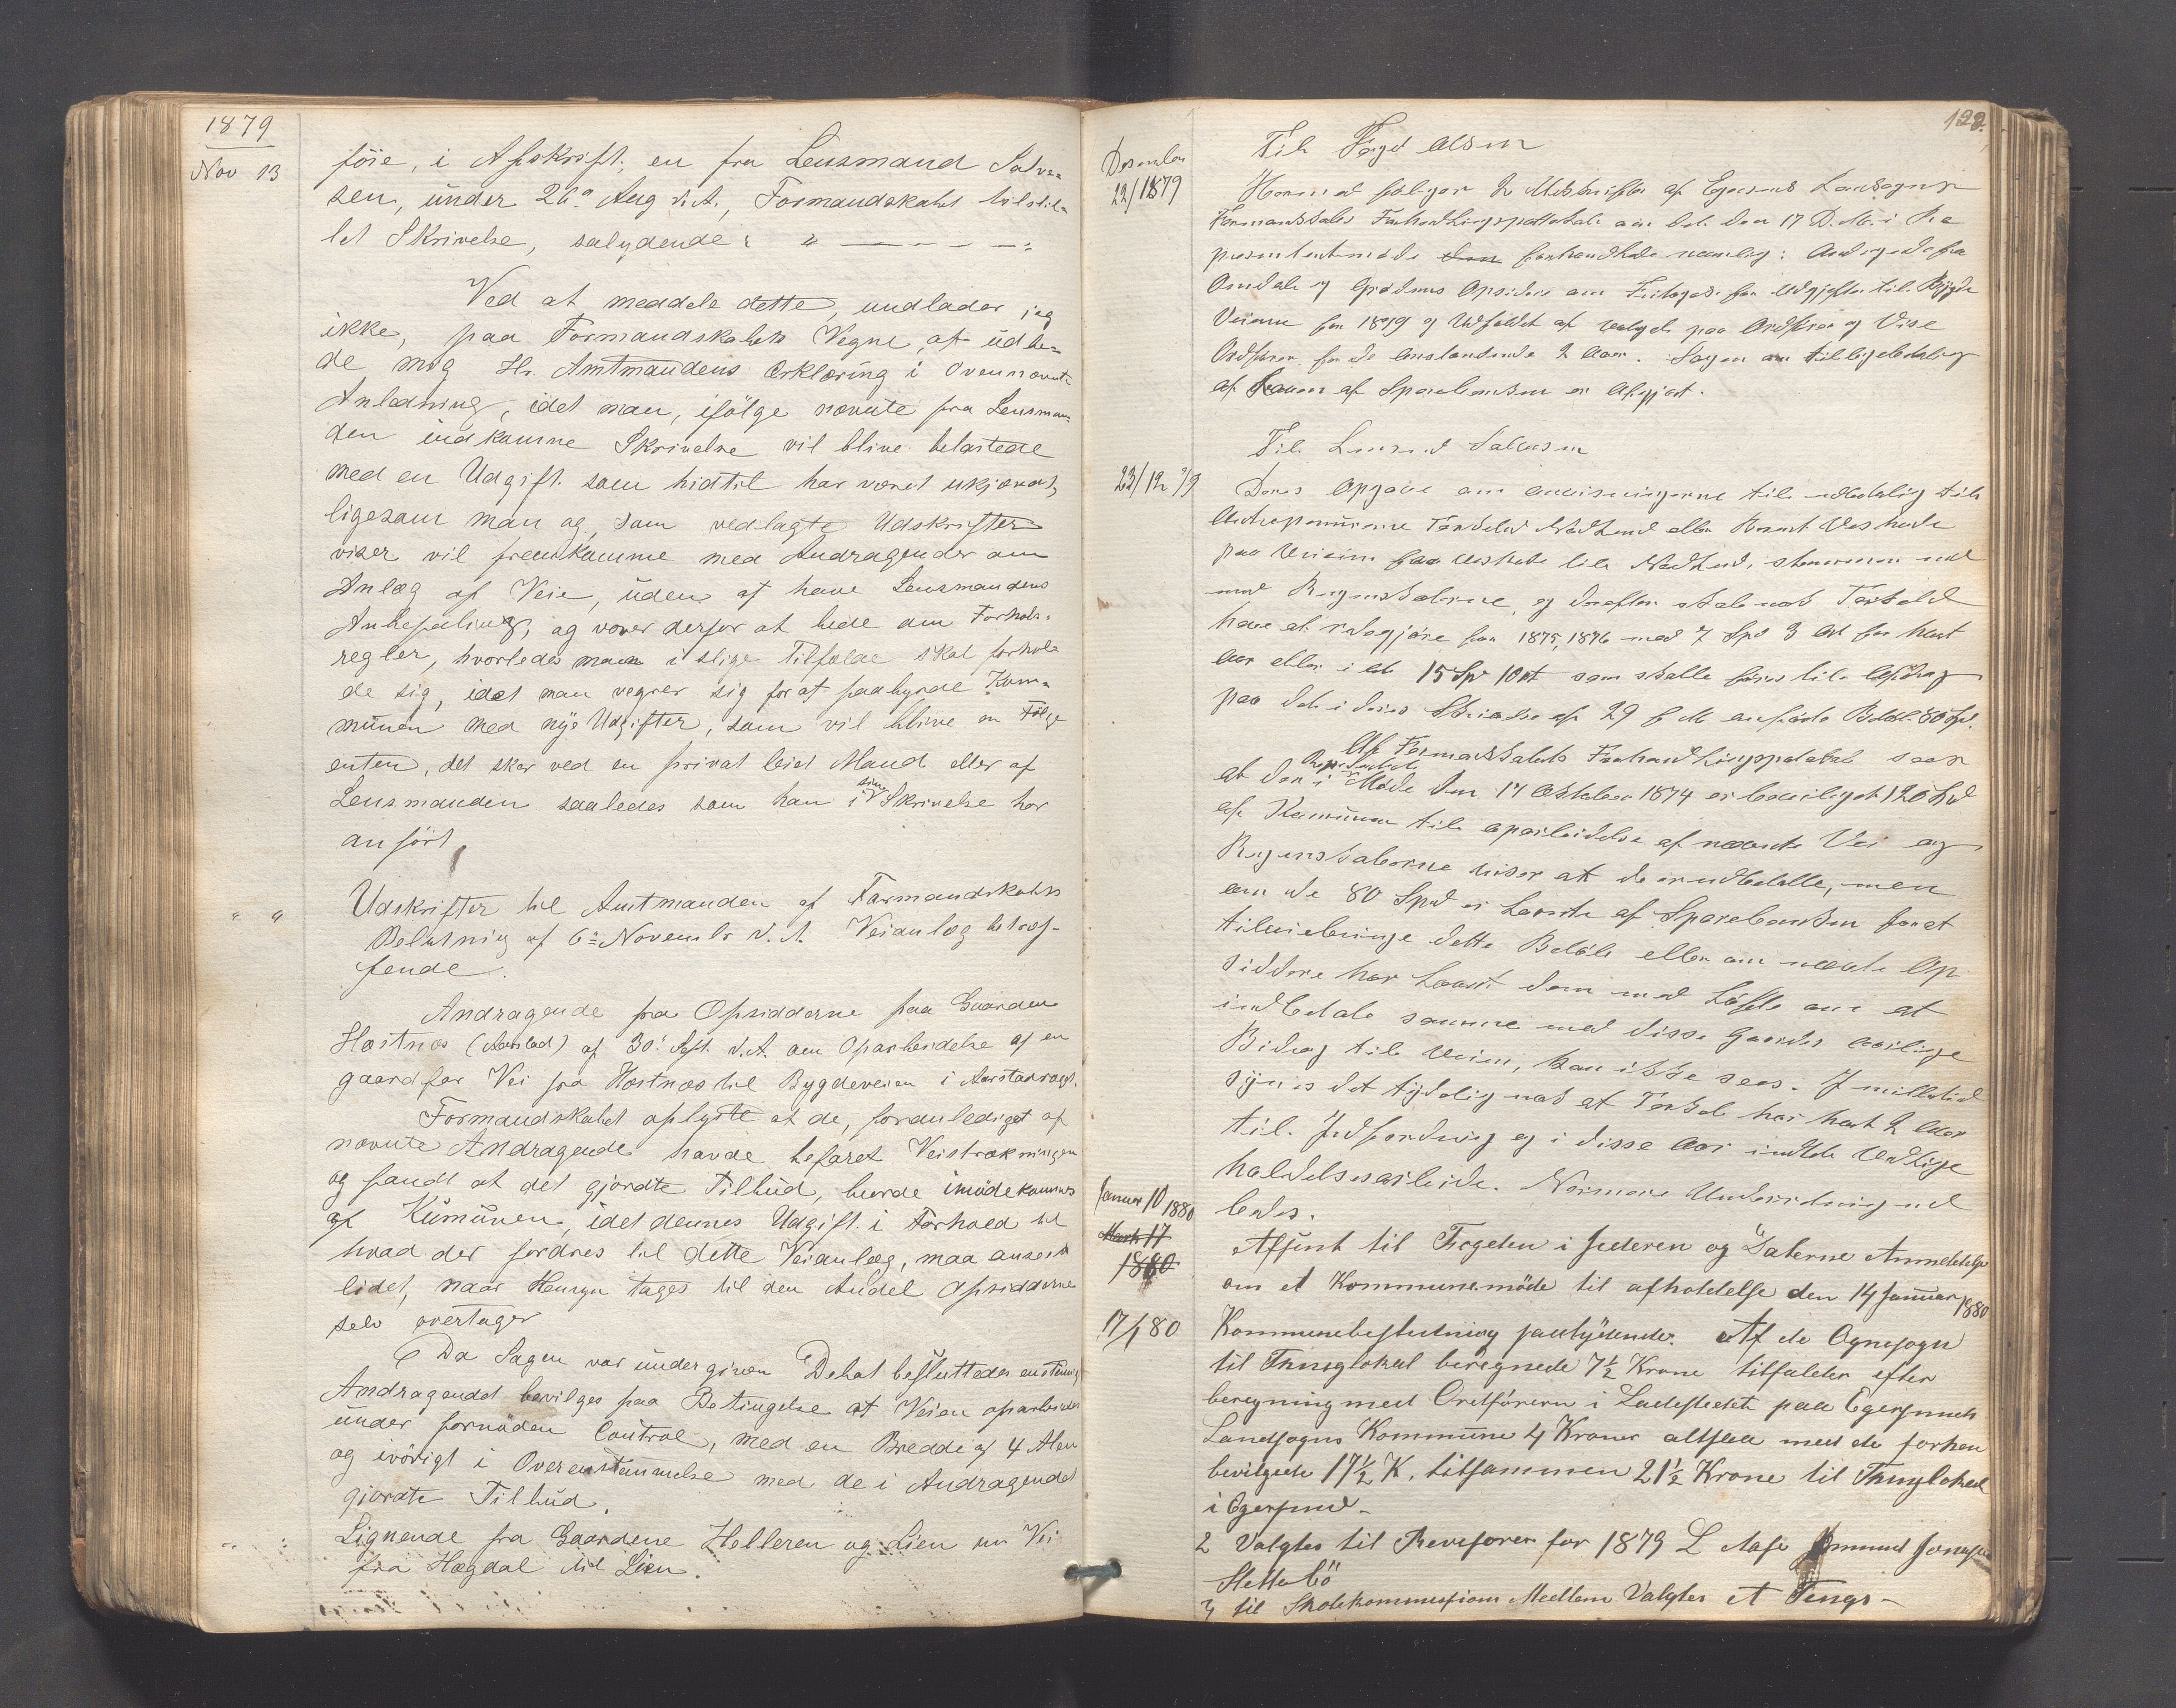 1879
Nov 13
föie, i Afskrift, en fra Lensmand Salve-
sen, under 26de Aug d.A., Formandskabet tilstil-
let Skrivelse, salydende: " — — — —:
Ved at meddele dette, undlader jeg
ikke, paa Formandskabets Vegne, at udbe-
de mig Hr. Amtmandens Erklæring i Ovennævnte
Anledning, idet man, ifölge nævnte fra Lensman-
den indkomne Skrivelse vil blive belastede
med en Udgift som hidtil har været ukjændt,
ligesom man og, som vedlagte Udskrifter
viser vil fremkomme med Andragender om
Anlæg af Veie, uden at have Lensmandens
Anbefaling, og vover derfor at bede om Forholds-
regler, hvorledes man i slige Tilfælde skal forhol-
de sig, idet man vegrer sig for at paabyrde Kom-
munen med nye Udgifter, som vil blive en Fölge
enten, det sker ved en privat leiet Mand eller af
Lensmanden saaledes som han i sin Skrivelse har
anfört.
" " Udskrifter til Amtmanden af Formandskabets
Beslutning af 6te Novembr d.A. Veianlæg betræf-
fende.
Andragende fra Opsidderne paa Gaarden
Hæstnes (Aarstad) af 30. Sept. d.A. om Oparbeidelse af en
gaard for Vei fra Hæstnes til Bygdeveien i Aarstadvaag.
Formandskabet oplyste at de, foranlediget af
nævnte Andragende havde befaret Veistrækningen
og fandt at det gjordte Tilbud, burde imödekommes
af Kumünen, idet dennes Udgift i Forhold til
hvad der fordres til dette Veianlæg, maa ansees
lidet, naar Hensyn tages til den Andel Opsidderne
selv overtager
Da Sagen var undergiven Debat besluttedes enstemig
Andragendet bevilges paa Betingelse at Veien oparbeides
under fornöden Control, med en Bredde af 4 Alen
og iövrigt i Overenstemmelse med de i Andragendet
gjordte Tilbud.
Lignende fra Gaardene Helleren og Lien um Vei
fra Hægdal til Lien.
122.
Desember
22/1879
Til Foged Olsen
Hermed fölger 2 Udskrifter af Egersunds Landsogns
Formandskabs Forhandlingsprotokol om det den 17 D.M. i Re
presentantmöde den forhandlede nemlig: Andragende fra
Omdal og Opsidere om Fritagelse for Udgifter til Bygde
Veiene for 1879 og Udfaldet af valget paa Ordförer og Vise
Ordförer for de anstundende 2 Aar. Sagen om tilbagebetaling
af Laanen af Sparebanken er afgjort.
23/12 79
Til Lensmand Salvesen
Deres Opgave om anvisningerne til udbetaling til
Entreprenörerne Torkeld Nædland eller
paa Veien fra til Nædland, stemmer
med Regnskaberne, og derefter skal nok Torkeld
have at redegjöre for 1875, 1876 med 7 Spd 3 Ort for hvert
Aar eller i alt 15 Spd 1 Ort som skulle föres til Afdrag
paa det i deres Skrivelse af 29 f M anförte Belöb 80 Spd.
Af Formandskabets Forhandlingsprotokol sees
at der i Repr. Möde den 17 Oktober 1874 er bevilget 120 Spd
af Kommunen til oparbeidelse af nævnte Vei og
Regnskaberne viser at de er udbetalte, men
om de 80 Spd er laante af Sparebanken for at
tilveiebringe dette Belöb eller om nævnte Op
siddere har laant dem med Löfte om at
indbetale samme med disse Gaardes aarlige
Bidrag til Veien, kan ikke sees. Imidlertid
synes det tydelig nok at Torkeld har havt 2 Aar
til Indfordring og i disse Aar Vedlige
holdelsesarbeide. Nærmere Underretning ud
bedes.
Januar 10 1880
Marts 17
1880
Afsent til Fogden i Jederen og Dalerne Anmeldelse
om et Kommunemöde til afholdelse den 14 Januar 1880
17/1 80
Kommunebeslutning saalydende. Af de Ognesogn
til Thinglokal beregnede 7½ Krone tilfalder efter
beregning med Ordföreren i Ladestedet paa Egersunds
Landsogns Kommune 4 Kroner altsaa med de forhen
bevilgede 17½ K, tilsammen 21½ Krone til Thinglokal
i Egersund—
2 Valgtes til Revisorer for 1879 L Aase
Slettebö
3 til Skolekommissions Medlem Valgtes A Tengs—